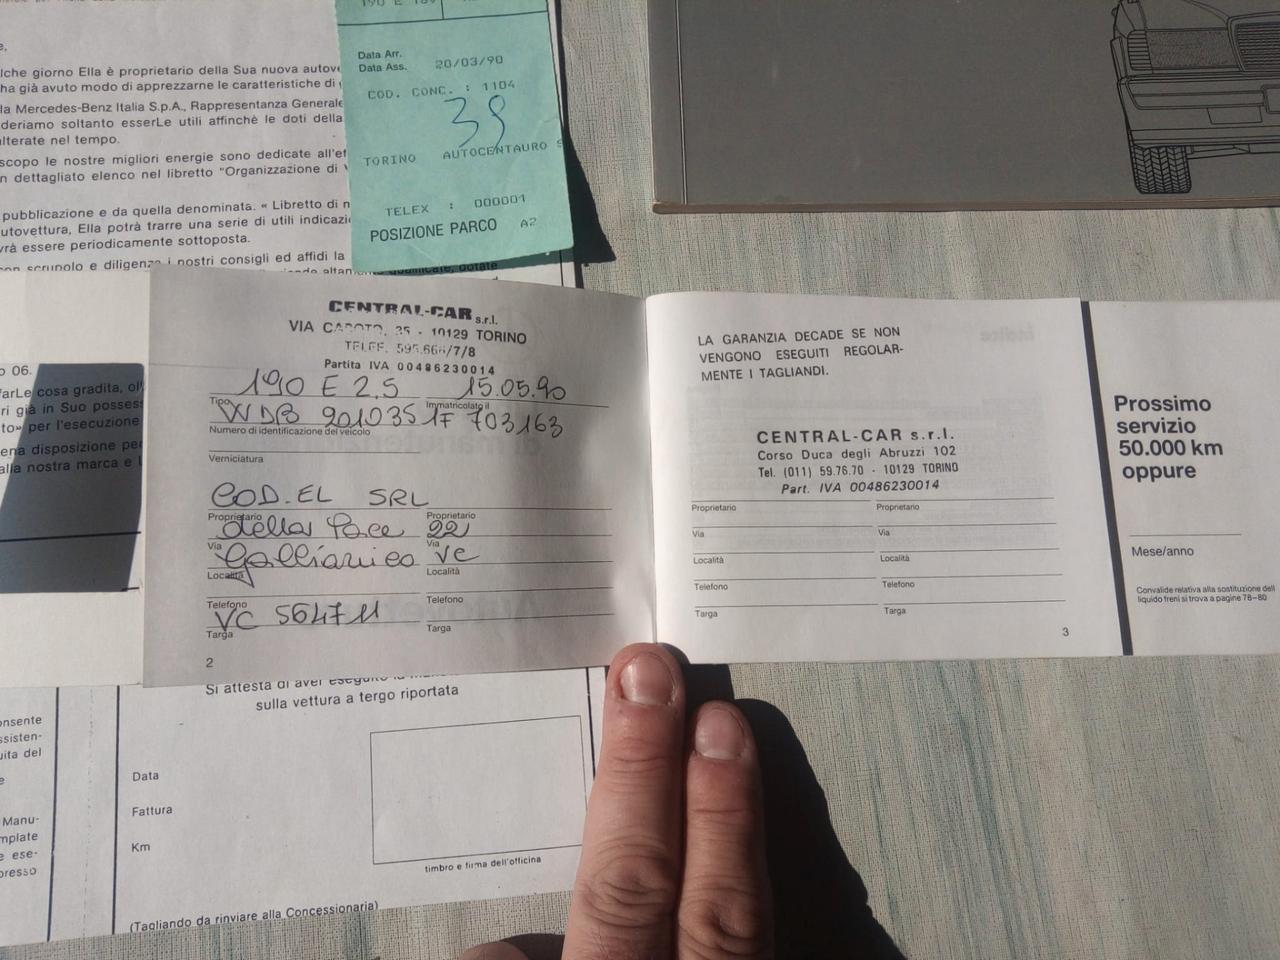 lche giorno Ella è proprietario della Sua nuova autove
ha già avuto modo di apprezzarne le caratteristiche di
la Mercedes-Benz Italia S.p.A., Rappresentanza Generale
deriamo soltanto esserLe utili affinchè le doti della
lterate nel tempo.
scopo le nostre migliori energie sono dedicate all'ef
n dettagliato elenco nel libretto "Organizzazione di V
pubblicazione e da quella denominata. « Libretto di m
utovettura, Ella potrà trarre una serie di utili indicazi
vrà essere periodicamente sottoposta.
on scrupolo e diligenza i nostri consigli ed affidi la
190 E
Data Arr.
Data Ass. 20/03/90
COD. CONC. : 1104
39
TORINO AUTOCENTAURO S
TELEX : 000001
POSIZIONE PARCO A2
o 06.
farLe cosa gradita, ol
ri già in Suo posses
to» per l'esecuzione
ena disposizione per
alla nostra marca e
CENTRAL-CAR s.r.l.
VIA CABOTO, 35 - 10129 TORINO
TELEF. 595.666/7/8
Partita IVA 00486230014
190 E 2.5 15.05.90
Tipo Immatricolato il
WDB 2010351F 703163
Numero di identificazione del veicolo
Verniciatura
COD.EL SRL
Proprietario Proprietario
della Pace 22
Via Via
Gaglianico VC
Località Località
Telefono Telefono
VC 564711
Targa Targa
2
LA GARANZIA DECADE SE NON
VENGONO ESEGUITI REGOLAR-
MENTE I TAGLIANDI.
CENTRAL-CAR s.r.l.
Corso Duca degli Abruzzi 102
Tel. (011) 59.76.70 - 10129 TORINO
Part. IVA 00486230014
Proprietario Proprietario
Via Via
Località Località
Telefono Telefono
Targa Targa
3
Prossimo
servizio
50.000 km
oppure
Mese/anno
Convalide relativa alla sostituzione dell
liquido freni si trova a pagine 78-80
Si attesta di aver eseguito la
sulla vettura a tergo riportata
Data
Fattura
Km
timbro e firma dell'officina
(Tagliando da rinviare alla Concessionaria)
onsente
ssisten-
uita del
e
Manu-
mplate
e ese-
presso